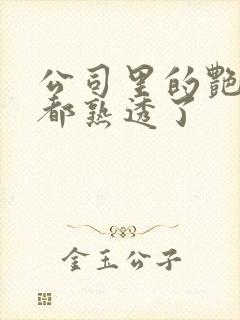 公司里的艷
都熟透了
金玉公子